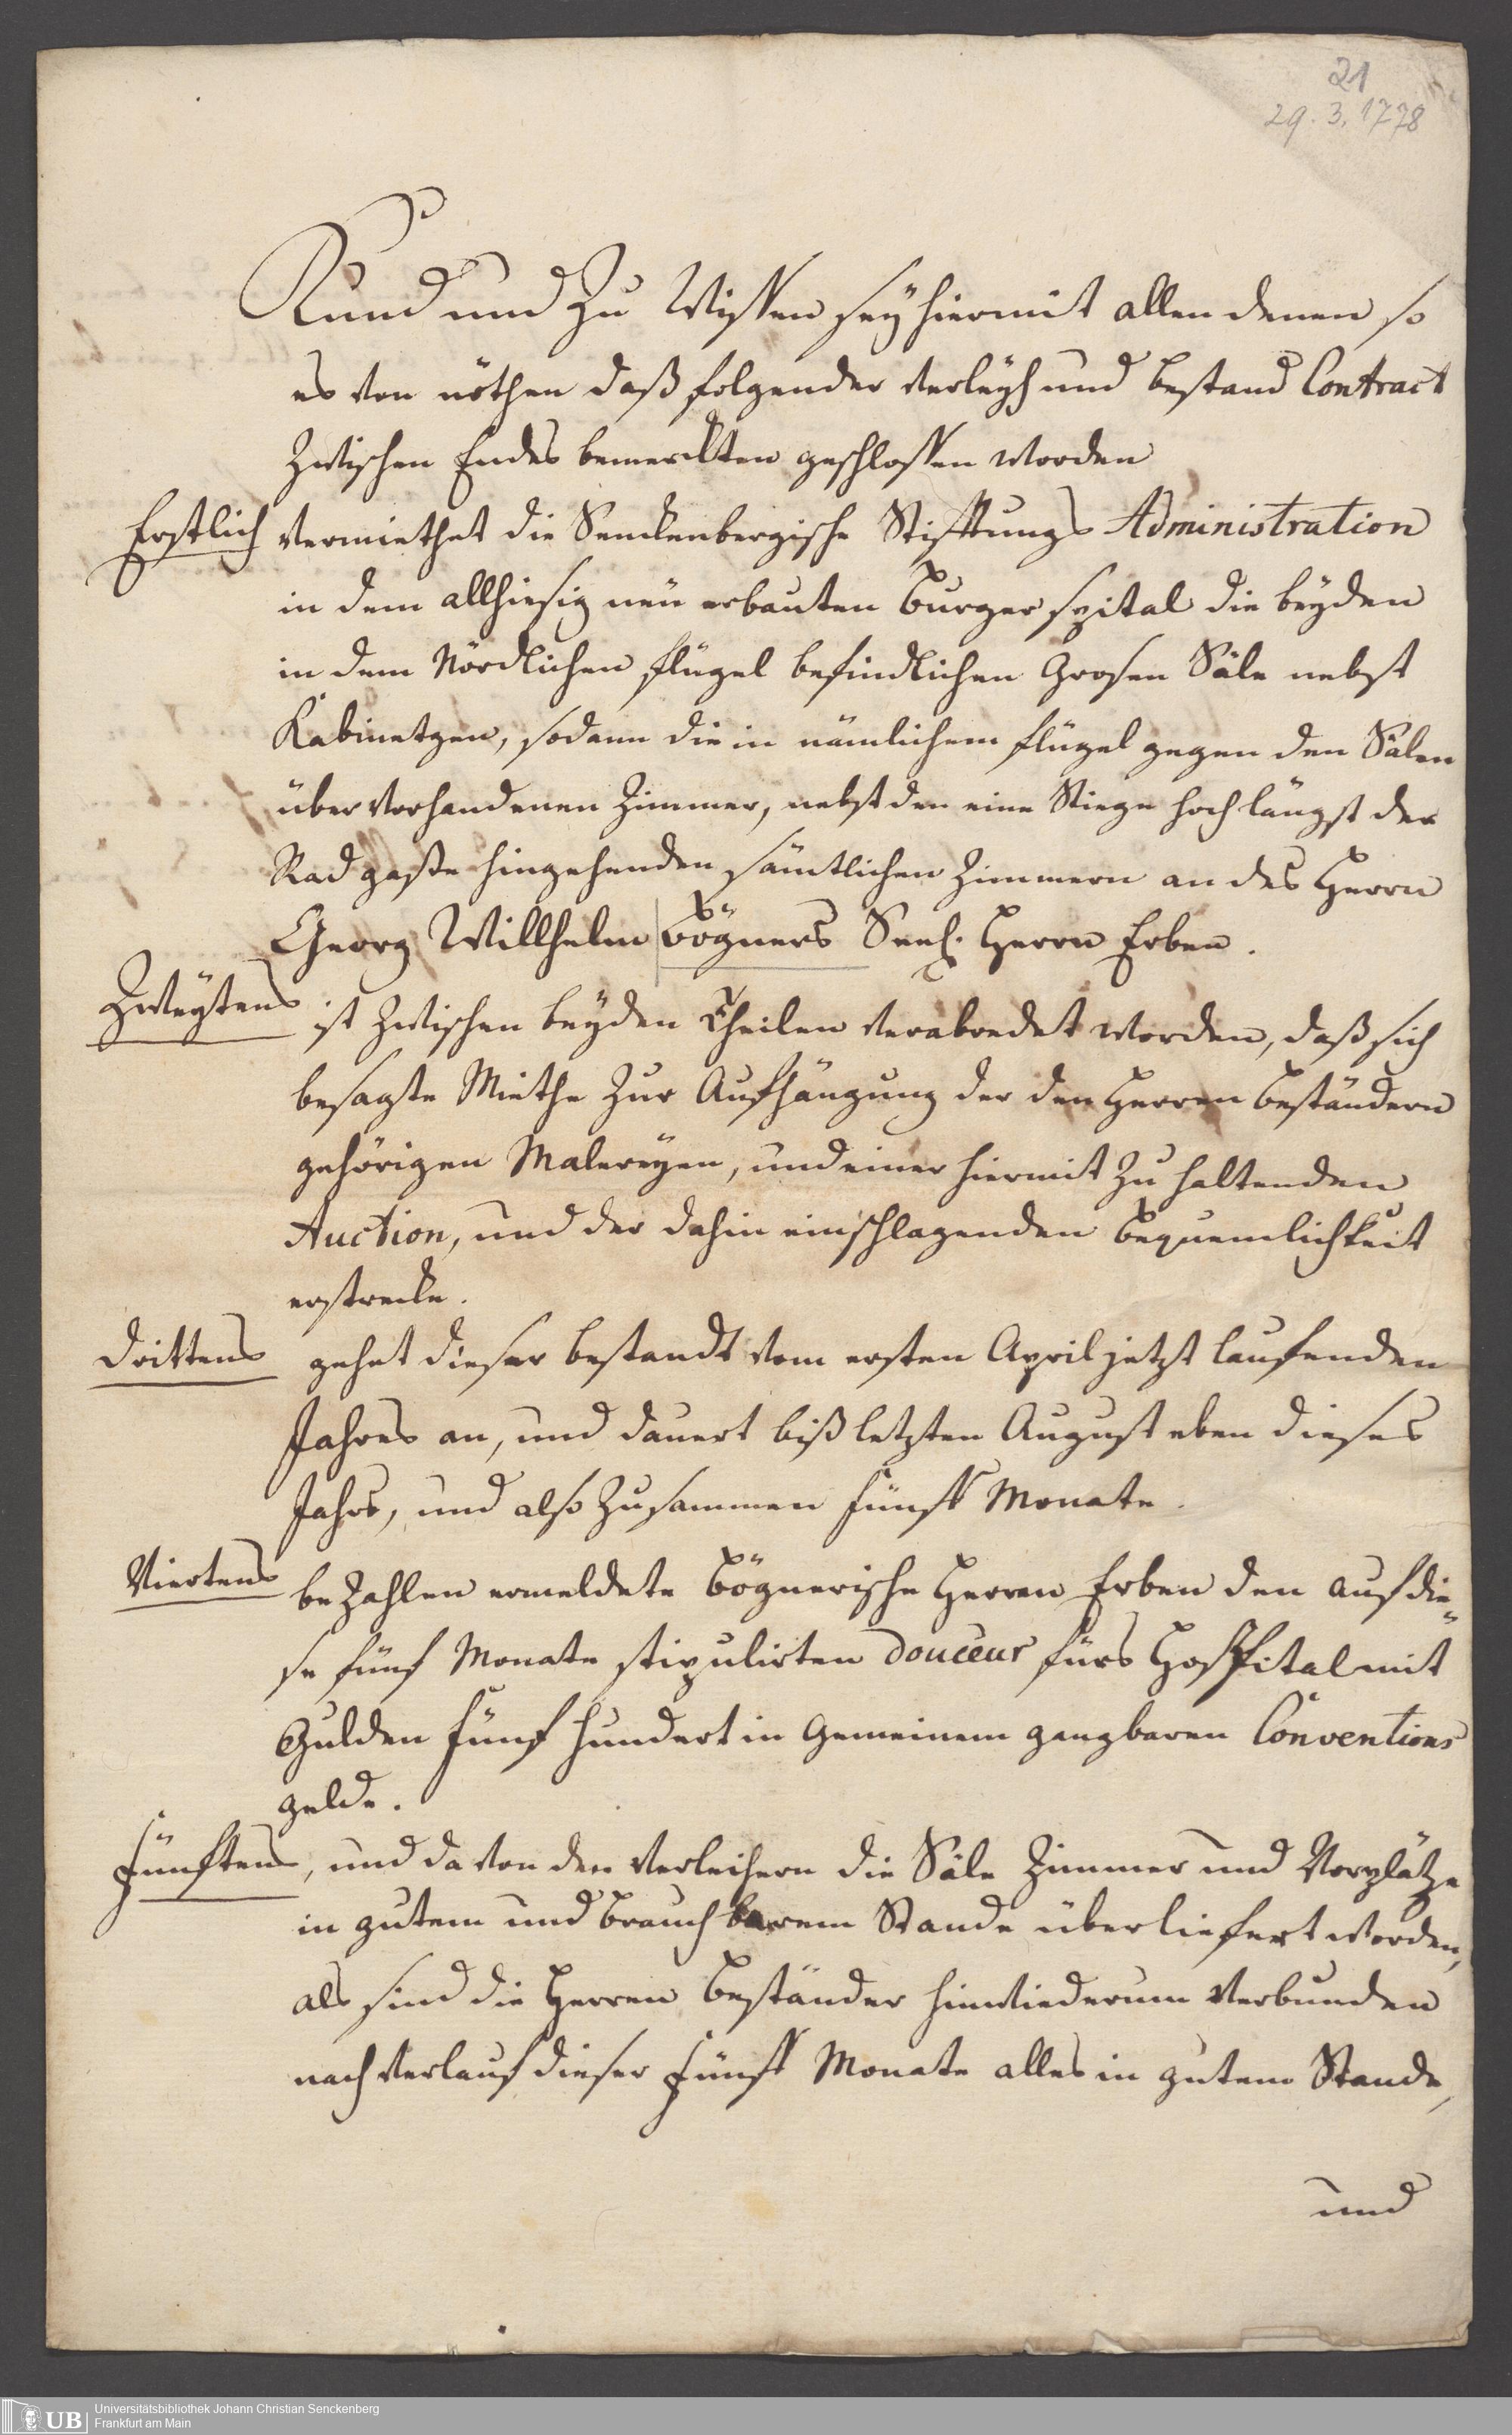 21
29. 3. 1778
Kund und Zu Wissen sey hiermit allen denen so
es von nöthen daß folgender verleyh und bestand Contract
Zwischen Endes bemerckten geschlossen worden
Erstlich vermiethet die Senckenbergische Stifftungs Administration
in dem allhiesig neu erbauten Burger spital die beyden
in dem Nördlichen flügel befindlichen Grosen Säle nebst
Kabinetgen, sodann die in nämlichem flügel gegen den Sälen
über vorhandenen Zimmer, nebst den eine Stiege hoch längst der
Rad gasse hingehenden sämtlichen Zimmern an des Herrn
Georg Willhelm Bögners Seel. Herrn Erben.
Zweytens ist Zwischen beyden Theilen verabredet worden, daß sich
besagte Miethe Zur Aufhängung der den Herren Beständern
gehörigen Malereyen, und einer hiermit Zu haltenden
Auction, und der dahin einschlagenden Bequemlichkeit
erstrecke.
Drittens gehet dieser bestandt vom ersten April jetzt laufenden
Jahres an, und dauert biß letzten August eben dieses
Jahrs, und also Zusammen fünff Monate.
Viertens beZahlen ermeldete Bögnerische Herren Erben den auf die„
se fünf Monate stipulirten douceur fürs Hospital mit
Gulden fünf hundert in Gemeinem gangbaren Conventions
gelde.
Fünftens, und da von den Verleihern die Säle Zimmer und Vorplätze
in gutem und brauchbarem Stande überliefert worden,
als sind die Herren Beständer hinwiederum verbunden
nach Verlauf dieser fünff Monate alles in gutem Stande,
und
UB
Universitätsbibliothek Johann Christian Senckenberg
Frankfurt am Main